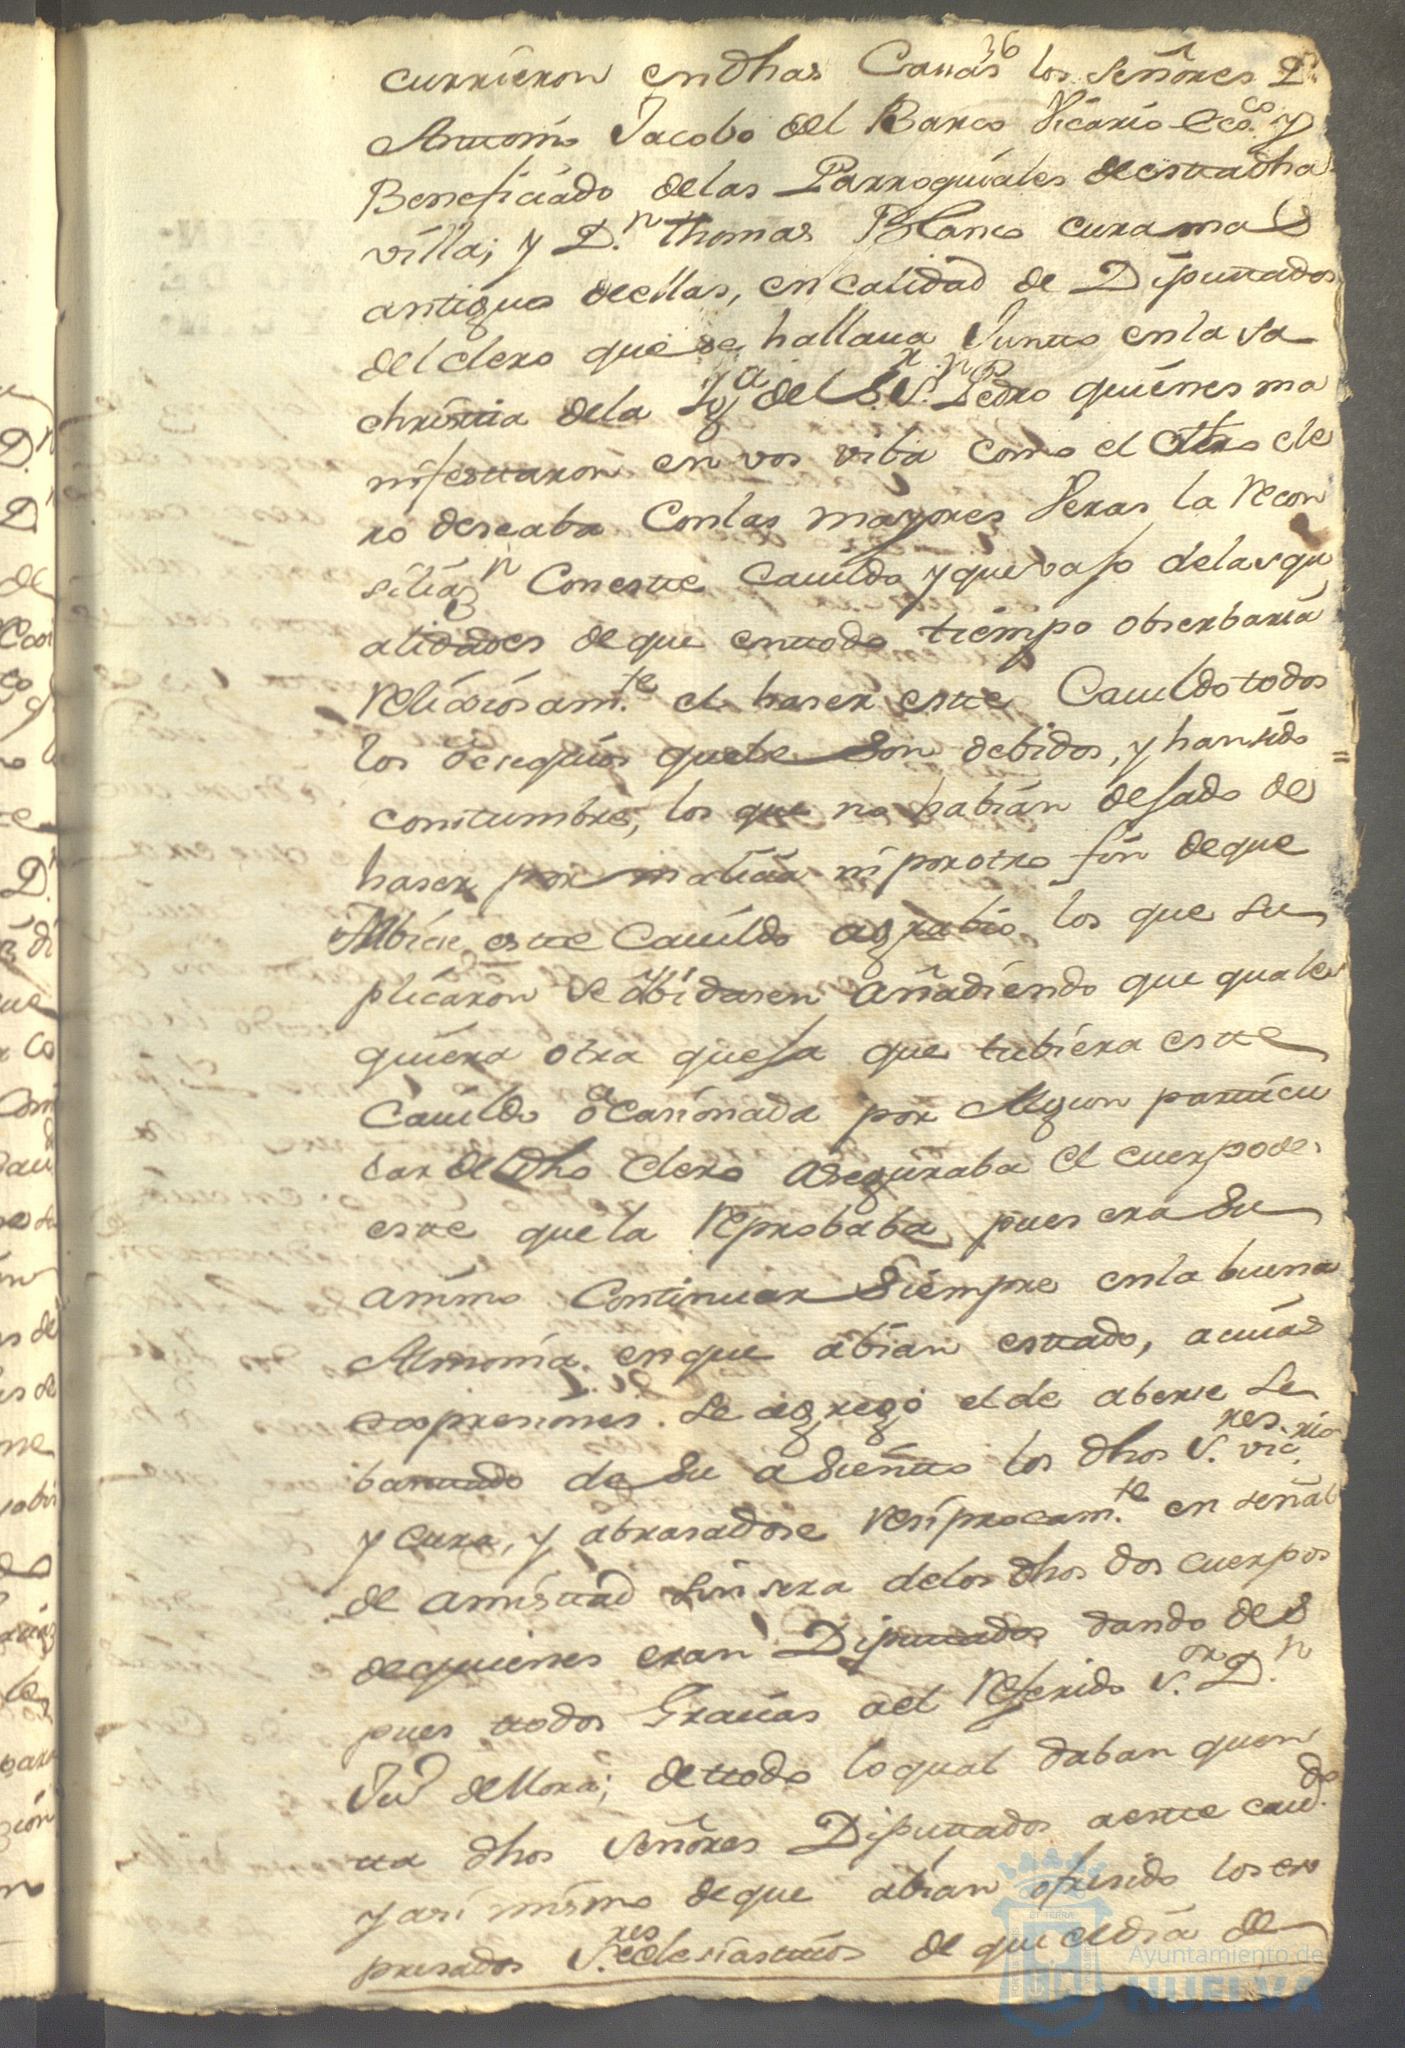 36
currieron en dhas Casas los Señores D.n
Anttonio Jacobo del Barco Vicario Ecco. y
Beneficiado de las Parroquiales de estta dha
villa; y D.n Thomas Blanco cura mas
antiguo de ellas, en calidad de Diputtados
del clero que se hallava Juntto en la Sa
christtia de la Yg.a del S.r S.n Pedro quienes ma
nifesttaron en vos viba como el cle
ro deseaba Con las mayores Veras la recon
siliaz.n Con estte Cavildo y que vajo de las qu
alidades de que en ttodo tiempo obserbaria
religiosam.te el haser estte Cavildo todos
los obsequios que le son debidos, y han sido
costumbre, los que no habian desado de
haser por malicia ni por otro fin de que
estte Cavildo agrabio los que su
plicaron se olbidasen añadiendo que quales
quiera otra quesa que tubiera estte
Cavildo ocasionada por Algun parttícu
lar de dho clero aseguraba el cuerpo de
estte que la reprobaba pues era su
animo Continuar siempre en la buena
Armonia en que abian esttado, a cuias
expresiones se agregó el de aberse le
banttado de su asientto los dhos S.res Vic.rio
y cura, y abrasadose resiprocam.te en señal
de amisttad sinsera de los dhos dos cuerpos
de quienes eran Diputtados dando des
pues ttodos Gracias a el referido S.or D.n
de Mora; de ttodo lo qual daban quen
tta dhos Señores Diputtados a estte cavd.o
y asi mismo de que abian ofresido los ex
presados S.res eclesiastticos de que el dia de
Ayuntamiento de
HUELVA